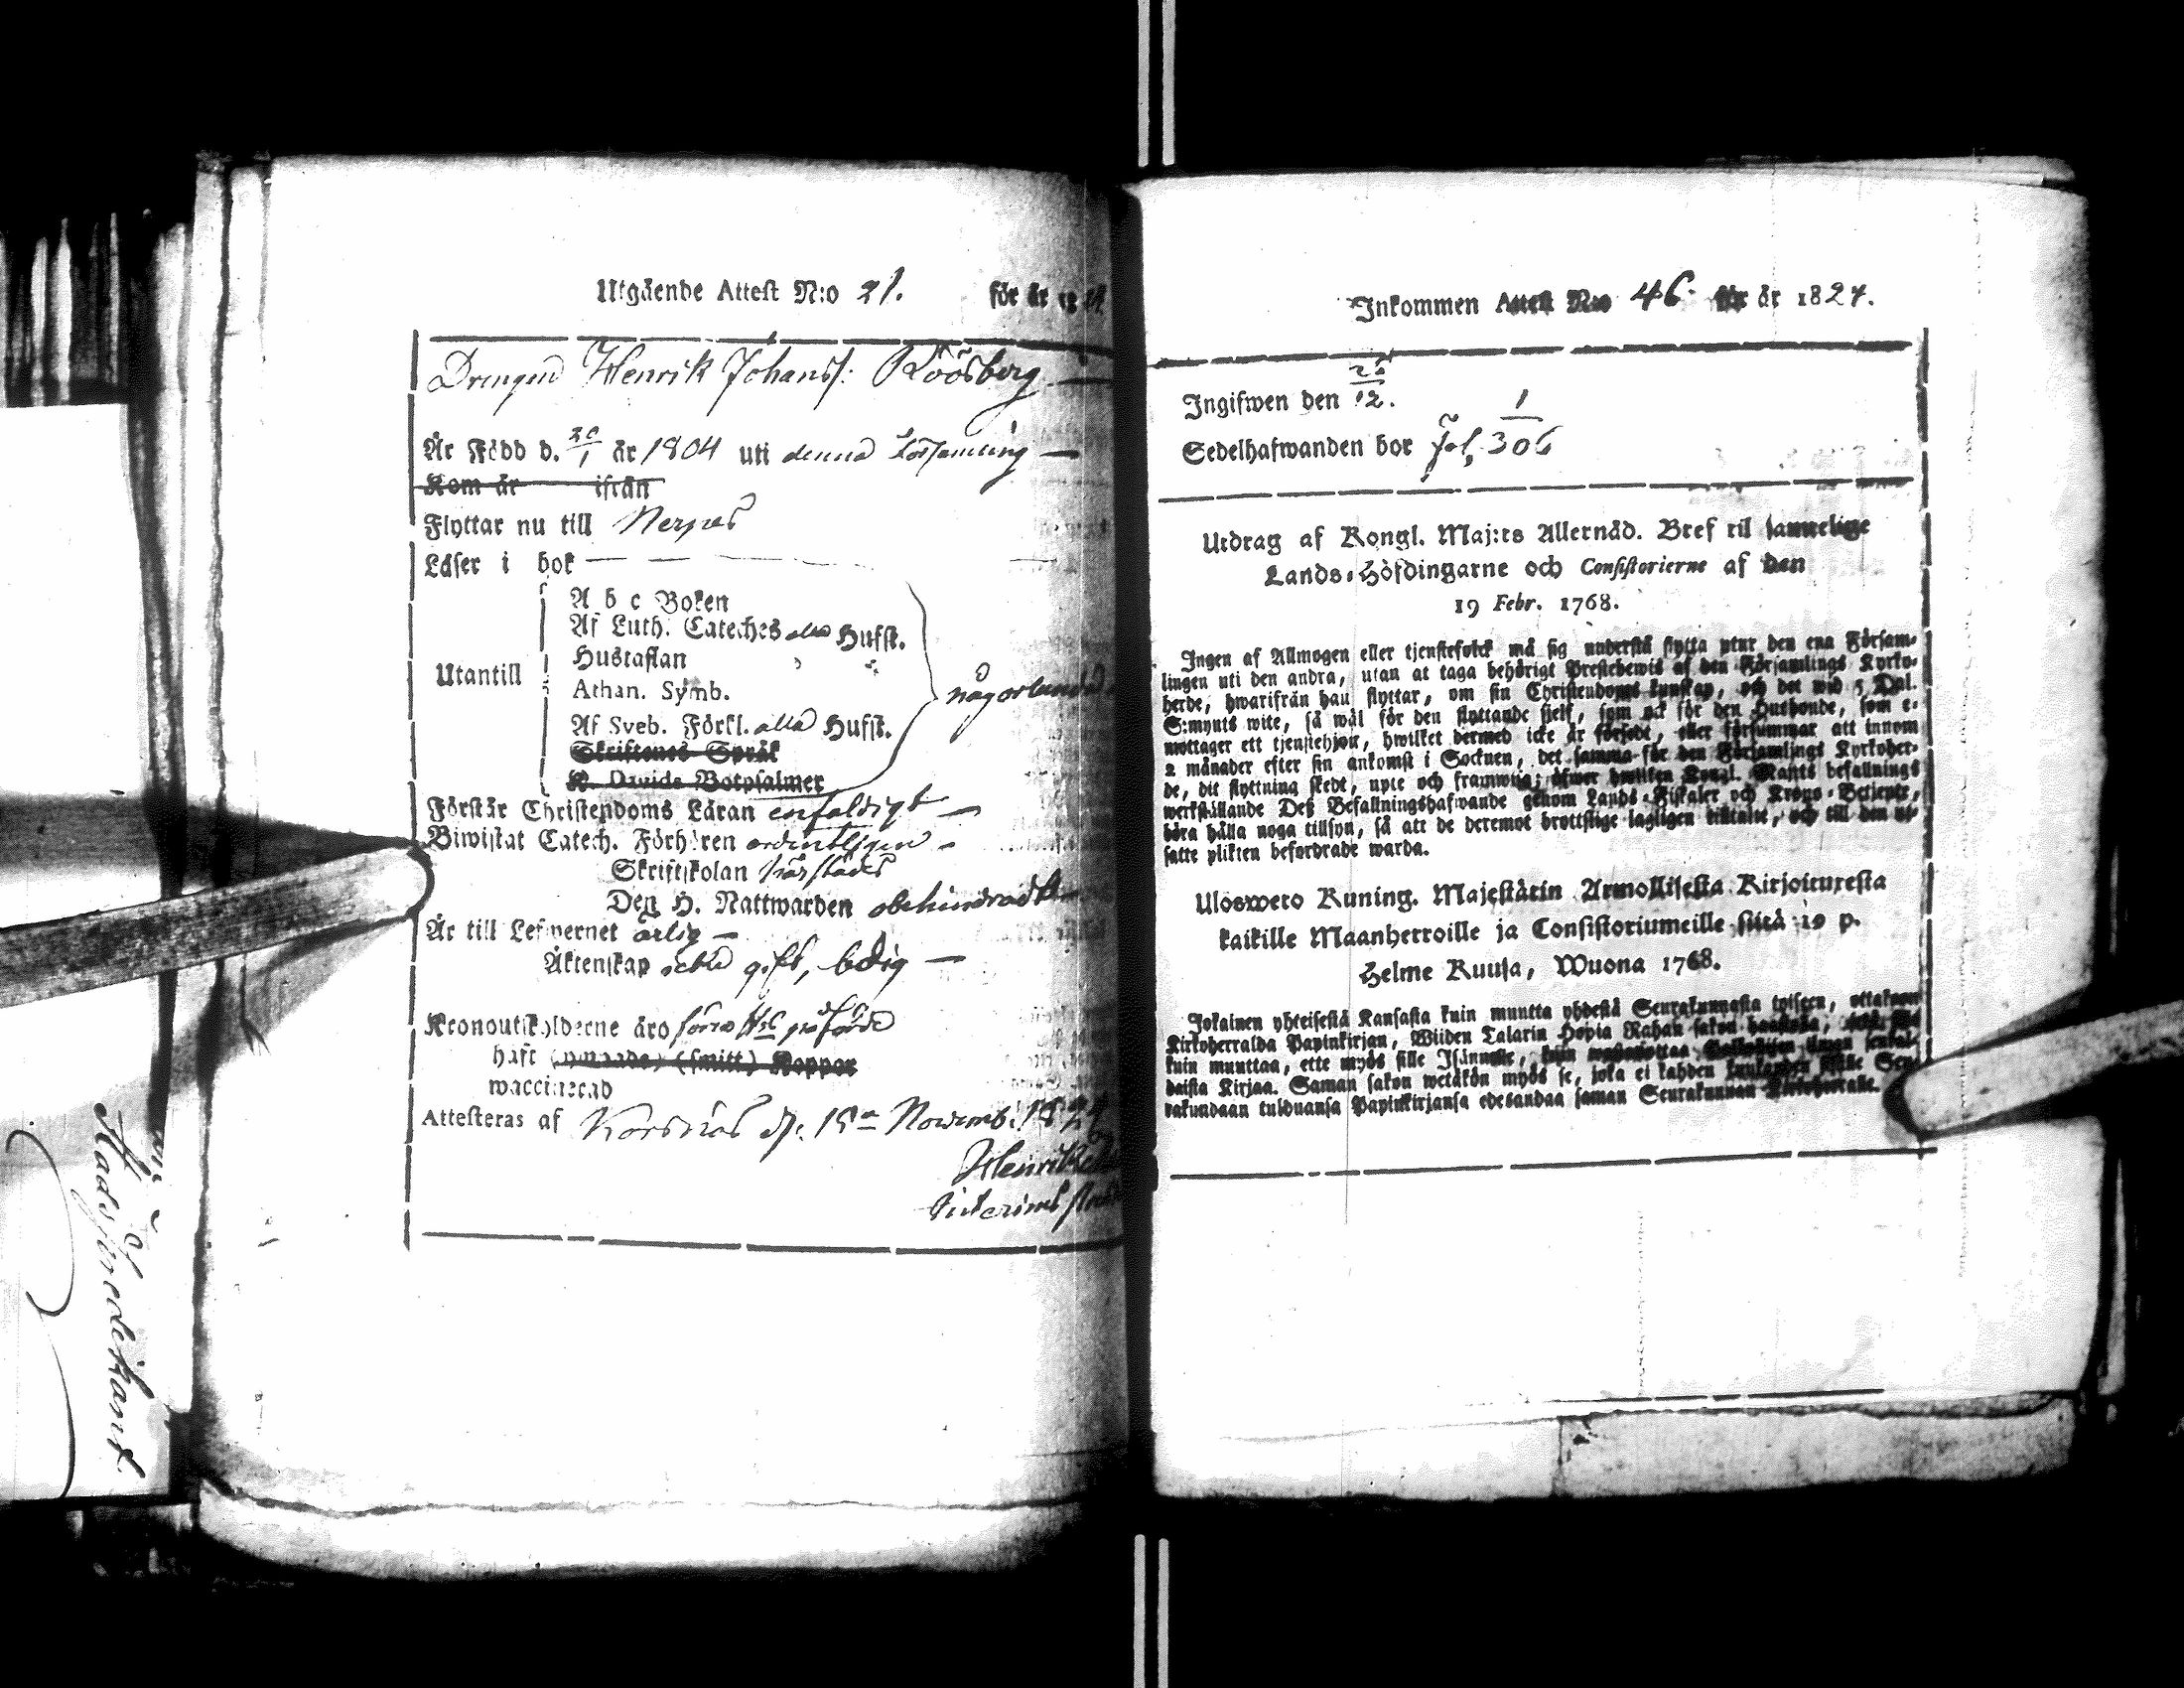 Utgående Attest N:o 21. för år 18
Drengen Henrik Johanss: Röösberg
Är Född d. år 1804 uti denna Församling
Kom år ifrån
Flyttar nu till Nerpes
Läser i bok
Utantill
A b c Boken
Af Luth. Cateches alla Hufst.
Hustaflan
Athan. Symb.
Af Sveb. Förkl. alla Hufst.
Skriftenes Språk
K. Davids Botpsalmer
någorlunda
Förstår Christendoms Läran enfaldigt
Biwistat Catech. Förhören ordenteligen
Skriftskolan härstädes
Den H. Nattwarden obehindradt
Är till Lefwernet ärlig
Äktenskap gift, ledig
Kronoutskylderne äro påförde
haft (smitt) Koppor
waccinerad
Attesteras af Korsnäs d. 15 Novemb. 1824
Henrik
Interims
Inkommen Attest N:o 46. för år 1824.
Ingifwen den 12.
Sedelhafwanden bor Fol. 306 1
Utdrag af Kongl. Maj:ts Allernåd. Bref til samtelige
Lands-Höfdingarne och Consistorierne af den
19 Febr. 1768.
Ingen af Allmogen eller tjenstefolck må sig understå flytta utur den ena Försam-
lingen uti den andra, utan at taga behörigt Prestebewis af den Församlings Kyrko-
herde, hwarifrån han flyttar, om sin Christendoms kunskap, och det wid 5 Dal.
S:mynts wite, så wäl för den flyttande sielf, som ock för den Husbonde, som e-
mottager ett tjenstehjon, hwilket dermed icke är försedt, eller försummar att innom
2 månader efter sin ankomst i Socknen, det samma för den Församlings Kyrkoher-
de, dit flyttning skedt, upte och framwisa; öfwer hwilken Kongl. Maj:ts befallnings
werkställande Deß Befallningshafwande genom Lands-Fiskaler och Krono-Betjente,
böra hålla noga tillsyn, så att de deremot brottslige lagligen tilltalte, och till den ut-
satte plikten befordrade warda.
Uloswero Kuning. Majestätin Armollisesta Kirjoituxesta
kaikille Maanherroille ja Consistoriumeille siitä 19 p.
Helme Kuusa, Wuona 1768.
Jokainen yhteisestä Kansasta kuin muutta yhdestä Seurakunnasta toiseen, ottakoon
Kirkoherralda Papinkirjan, Wiiden Talarin Hopia Rahan sakon haastolla,
kuin muuttaa, ette myös sille Isännälle, kuin
daista Kirjaa. Saman sakon wetäkön myös se, joka ei kahden sisälle Seu-
rakundaan tulduansa Papinkirjansa edesandaa saman Seurakunnan Kirkoherralle.